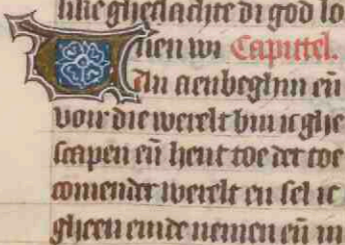 ghedachte di god lo
uen wi Capittel.
An aenbeghin eñ
voir die werelt bin ic ghe
scapen eñ hent toe der toe
comender werelt en sel ic
gheen einde nemen eñ in